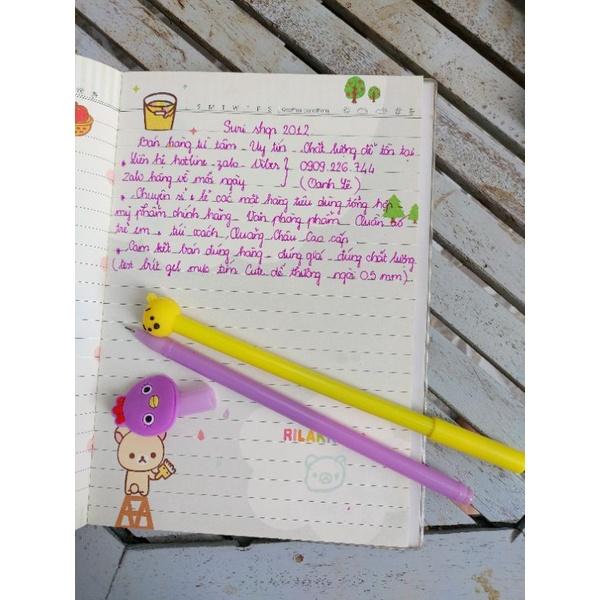 S M T W T F S
Suri shop 2012
Bán hàng từ tâm - Uy tín - Chất lượng để tồn tại
• Liên hệ hotline - zalo - Viber } 0909.226.744
Zalo hàng về mỗi ngày (Oanh Lê)
• Chuyên sỉ & lẻ các mặt hàng tiêu dùng tổng hợp
mỹ phẩm chính hãng - Văn phòng phẩm - Quần áo
trẻ em & túi xách Quảng Châu Cao cấp
• Cam kết bán đúng hàng - đúng giá - đúng chất lượng
(test bút gel mực tím Cute dễ thương ngòi 0.5 mm)
RILAK